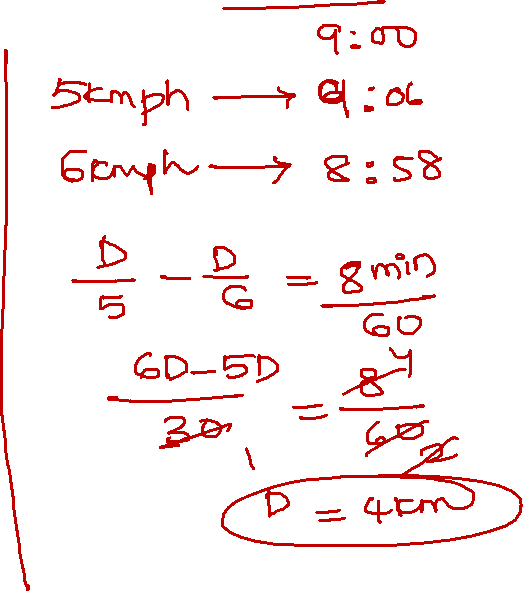 9:00
5kmph → 9:06
6kmph → 8:58
D/5 - D/6 = 8min/60
6D-5D/30 = 8 4/60 2
D = 4km